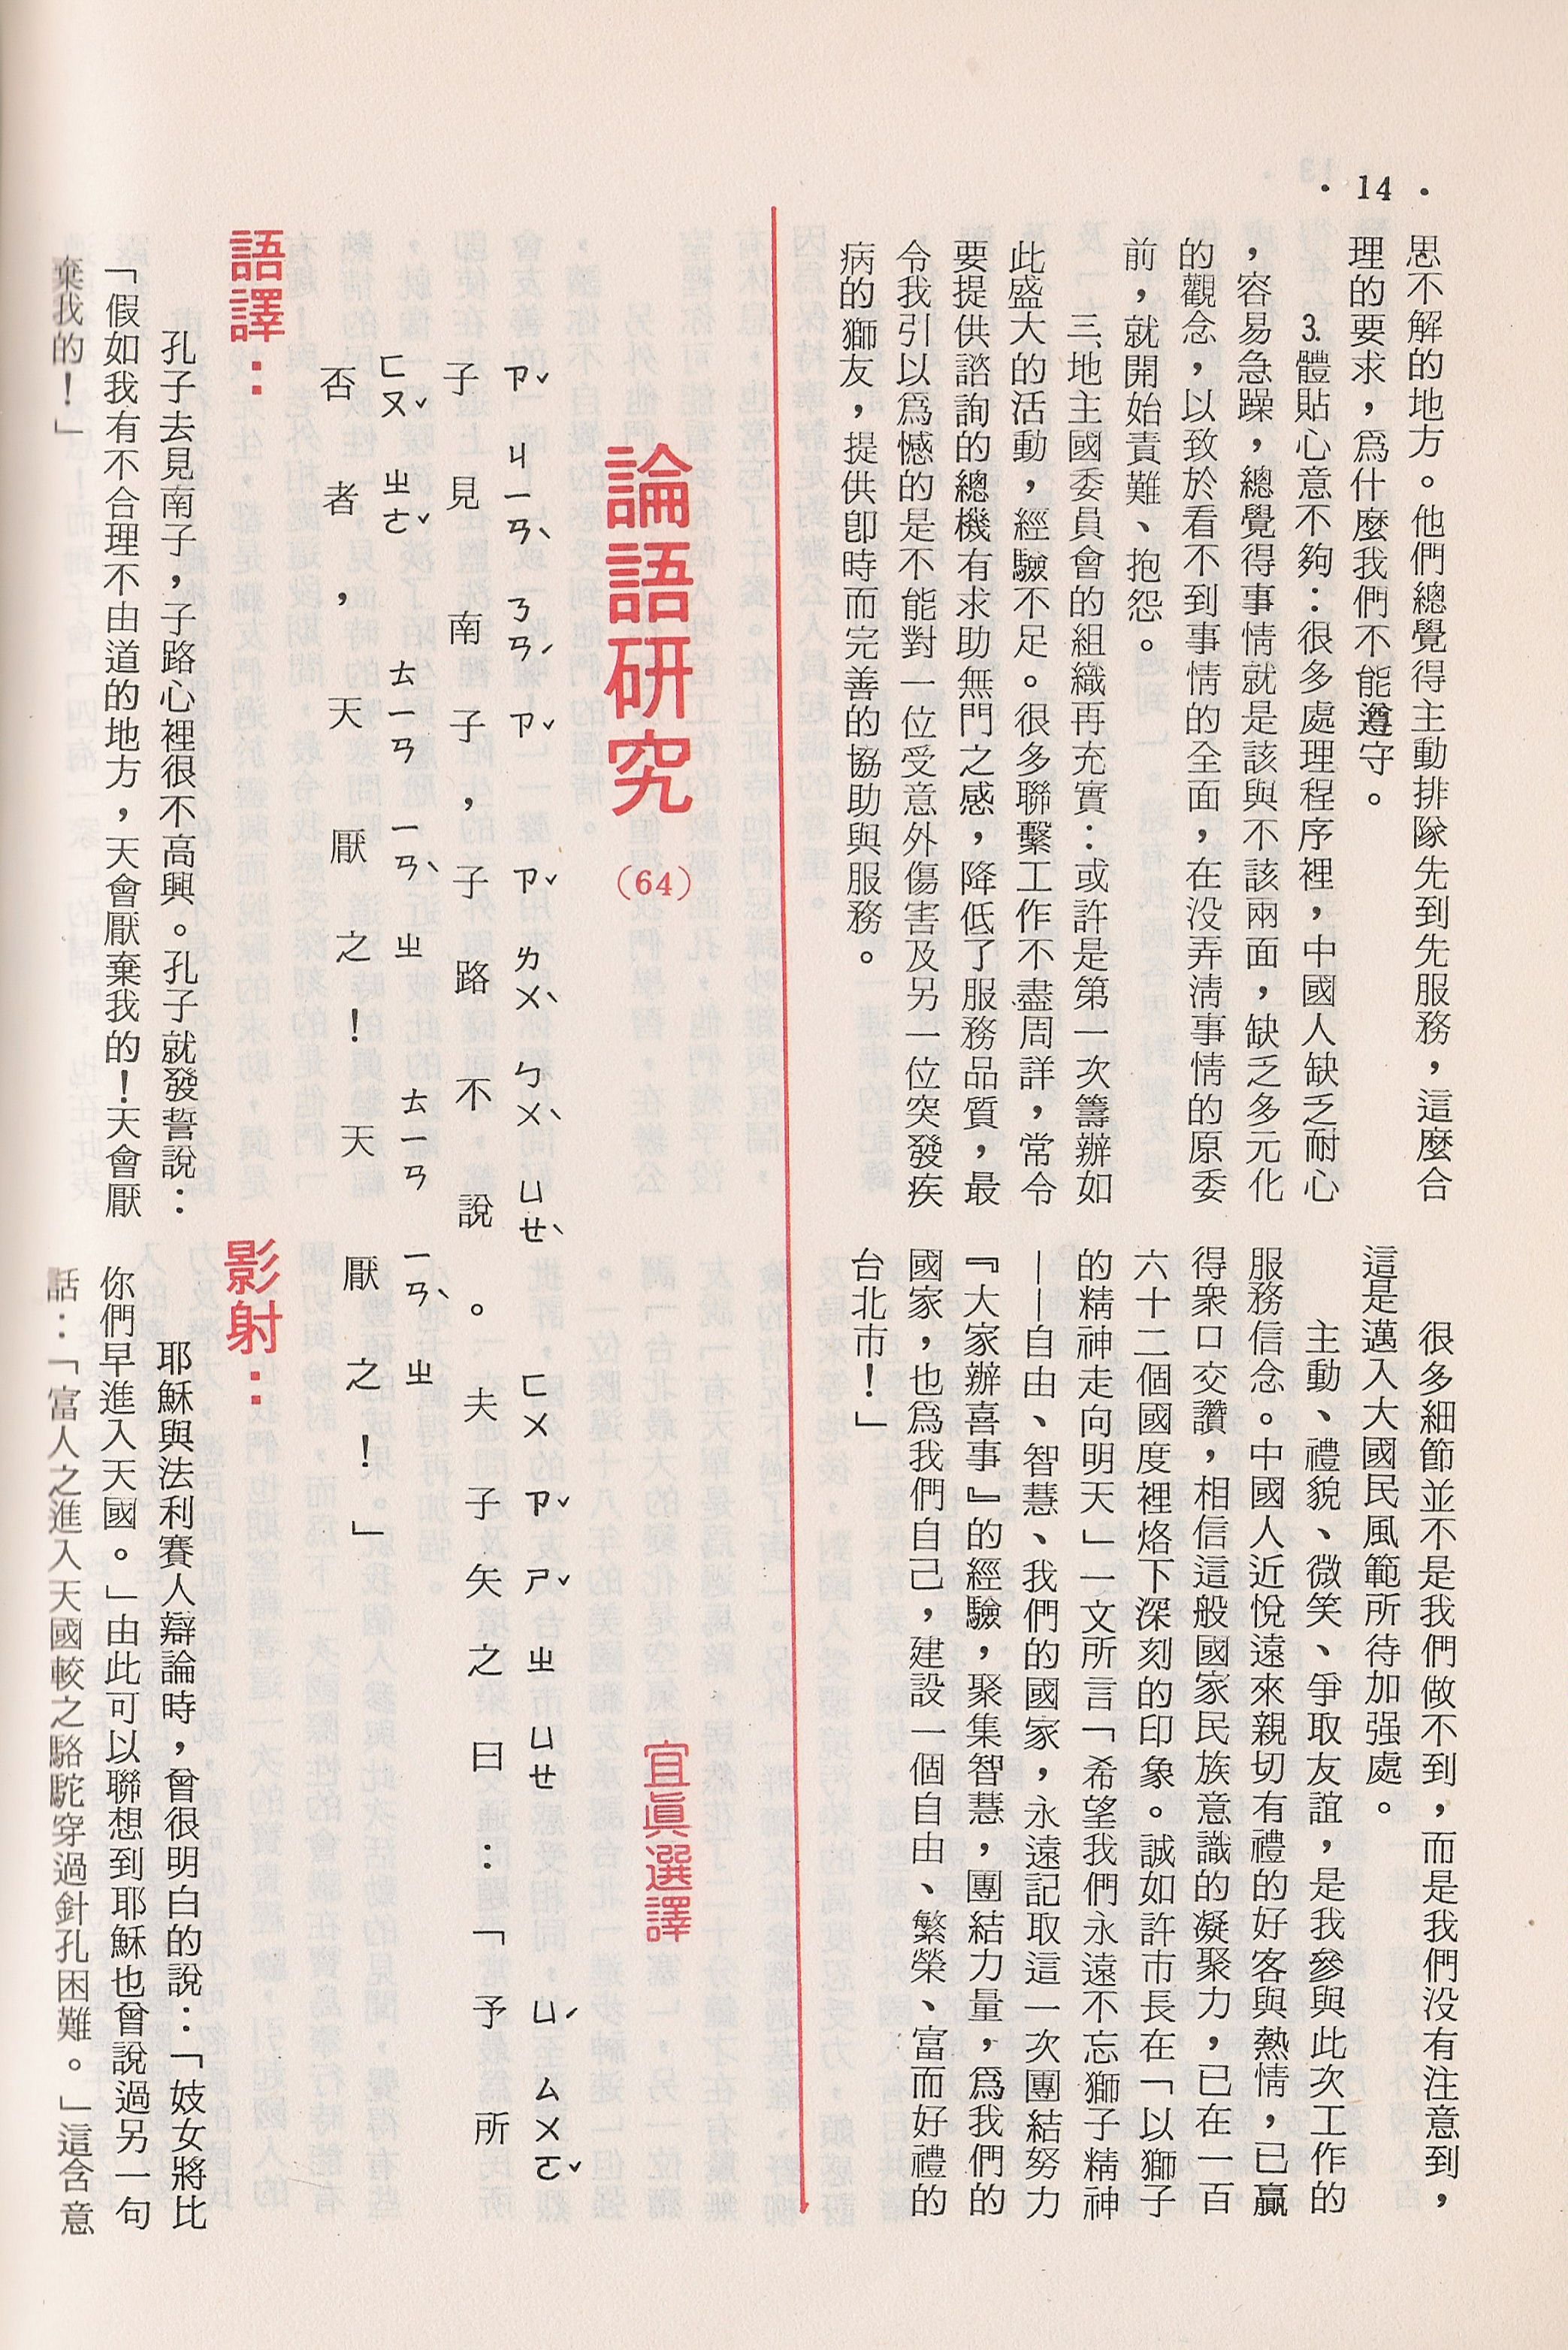 ·14·
思不解的地方。他們總覺得主動排隊先到先服務，這麼合
理的要求，爲什麼我們不能遵守。
3.體貼心意不夠：很多處理程序裡，中國人缺乏耐心
，容易急躁，總覺得事情就是該與不該兩面，缺乏多元化
的觀念，以致於看不到事情的全面，在沒弄清事情的原委
前，就開始責難、抱怨。
三、地主國委員會的組織再充實：或許是第一次籌辦如
此盛大的活動，經驗不足。很多聯繫工作不盡周詳，常令
要提供諮詢的總機有求助無門之感，降低了服務品質，最
令我引以爲憾的是不能對一位受意外傷害及另一位突發疾
病的獅友，提供卽時而完善的協助與服務。
很多細節並不是我們做不到，而是我們沒有注意到，
這是邁入大國民風範所待加强處。
主動、禮貌、微笑、爭取友誼，是我參與此次工作的
服務信念。中國人近悅遠來親切有禮的好客與熱情，已贏
得衆口交讚，相信這般國家民族意識的凝聚力，已在一百
六十二個國度裡烙下深刻的印象。誠如許市長在「以獅子
的精神走向明天」一文所言「希望我們永遠不忘獅子精神
——自由、智慧、我們的國家，永遠記取這一次團結努力
『大家辦喜事』的經驗，聚集智慧，團結力量，爲我們的
國家，也爲我們自己，建設一個自由、繁榮、富而好禮的
台北市！」
論語研究（64）
宜眞選譯
ㄗˇ ㄐㄧㄢˋ ㄋㄢˊ ㄗˇ ㄗˇ ㄌㄨˋ ㄅㄨˋ ㄩㄝˋ ㄈㄨ ㄗˇ ㄕˇ ㄓ ㄩㄝ ㄩˊ ㄙㄨㄛˇ
子見南子，子路不說。夫子矢之曰：「予所
ㄈㄡˇ ㄓㄜˇ ㄊㄧㄢ ㄧㄢˋ ㄓ ㄊㄧㄢ ㄧㄢˋ ㄓ
否者，天厭之！天厭之！」
語譯：
孔子去見南子，子路心裡很不高興。孔子就發誓說：
「假如我有不合理不由道的地方，天會厭棄我的！天會厭
棄我的！」
影射：
耶穌與法利賽人辯論時，曾很明白的說：「妓女將比
你們早進入天國。」由此可以聯想到耶穌也曾說過另一句
話：「富人之進入天國較之駱駝穿過針孔困難。」這含意